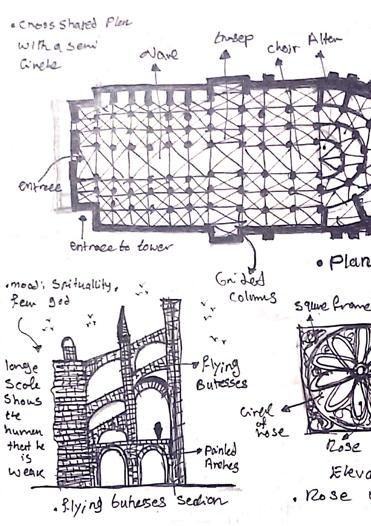 • Cross Shaped Plan
with a semi
Circle
Nave
transep
choir
Alter
entrace
entrace to tower
Grided
Columns
• Plan
• mood: Sprituallity,
fear god
large
Scale
Shows
the
human
that he
is
weak
Flying
Butresses
Pointed
Arches
• flying butresses section
Squre frame
Circel
of
rose
Rose
Eleva
• Rose